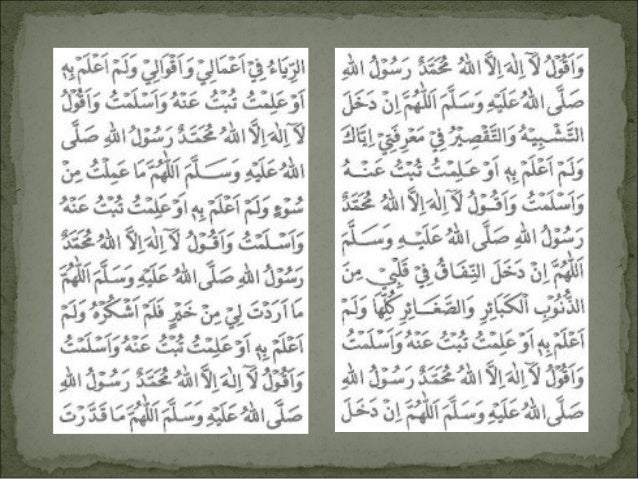 وَاَقُوْلُ لَآ اِلٰهَ اِلَّا اللهُ مُحَمَّدٌ رَسُوْلُ اللهِ
صَلَّى اللهُ عَلَيْهِ وَسَلَّمَ اَللّٰهُمَّ اِنْ دَخَلَ
التَّشْبِيْهُ وَالتَّقْصِيْرُ فِيْ مَعْرِفَتِيْ اِيَّاكَ
وَلَمْ اَعْلَمْ بِهٖ اَوْ عَلِمْتُ تُبْتُ عَنْهُ
وَاَسْلَمْتُ وَاَقُوْلُ لَآ اِلٰهَ اِلَّا اللهُ مُحَمَّدٌ
رَسُوْلُ اللهِ صَلَّى اللهُ عَلَيْهِ وَسَلَّمَ
اَللّٰهُمَّ اِنْ دَخَلَ النِّفَاقُ فِيْ قَلْبِيْ مِنَ
الذُّنُوْبِ الْكَبَائِرِ وَالصَّغَائِرِ كُلِّهَا وَلَمْ
اَعْلَمْ بِهٖ اَوْ عَلِمْتُ تُبْتُ عَنْهُ وَاَسْلَمْتُ
وَاَقُوْلُ لَآ اِلٰهَ اِلَّا اللهُ مُحَمَّدٌ رَسُوْلُ اللهِ
صَلَّى اللهُ عَلَيْهِ وَسَلَّمَ اَللّٰهُمَّ اِنْ دَخَلَ
الرِّيَاءُ فِيْ اَعْمَالِيْ وَاَقْوَالِيْ وَلَمْ اَعْلَمْ بِهٖ
اَوْ عَلِمْتُ تُبْتُ عَنْهُ وَاَسْلَمْتُ وَاَقُوْلُ
لَآ اِلٰهَ اِلَّا اللهُ مُحَمَّدٌ رَسُوْلُ اللهِ صَلَّى
اللهُ عَلَيْهِ وَسَلَّمَ اَللّٰهُمَّ مَا عَمِلْتُ مِنْ
سُوْءٍ وَلَمْ اَعْلَمْ بِهٖ اَوْ عَلِمْتُ تُبْتُ عَنْهُ
وَاَسْلَمْتُ وَاَقُوْلُ لَآ اِلٰهَ اِلَّا اللهُ مُحَمَّدٌ
رَسُوْلُ اللهِ صَلَّى اللهُ عَلَيْهِ وَسَلَّمَ اَللّٰهُمَّ
مَا اَرَدْتَ لِيْ مِنْ خَيْرٍ فَلَمْ اَشْكُرْهُ وَلَمْ
اَعْلَمْ بِهٖ اَوْ عَلِمْتُ تُبْتُ عَنْهُ وَاَسْلَمْتُ
وَاَقُوْلُ لَآ اِلٰهَ اِلَّا اللهُ مُحَمَّدٌ رَسُوْلُ اللهِ
صَلَّى اللهُ عَلَيْهِ وَسَلَّمَ اَللّٰهُمَّ مَا قَدَّرْتَ